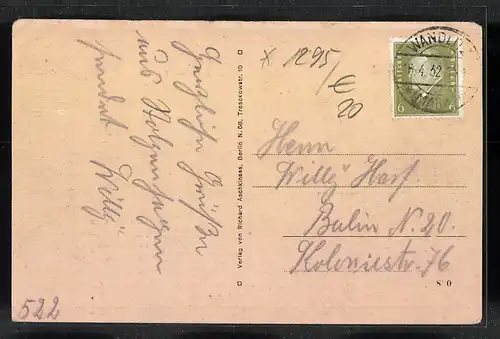 Herzliche Grüße
aus Stolzenhagen
sendet Willy
Verlag von Richard Aschkinass, Berlin N. 58, Tresckowstr. 10
* 1295/
€
20
WANDLITZ
4.32
6 6
Herrn
Willy Harf.
Berlin N. 20.
Koloniestr. 76
S 0
522